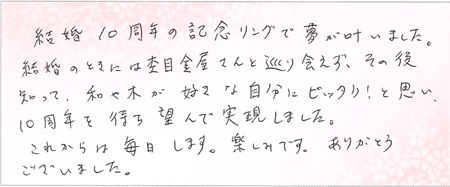 結婚10周年の記念リングで夢が叶いました。
結婚のときには杢目金屋さんと巡り会えず、その後
知って、和や木が好きな自分にピッタリ!と思い、
10周年を待ち望んで実現しました。
これからは毎日します。楽しみです。ありがとう
ございました。